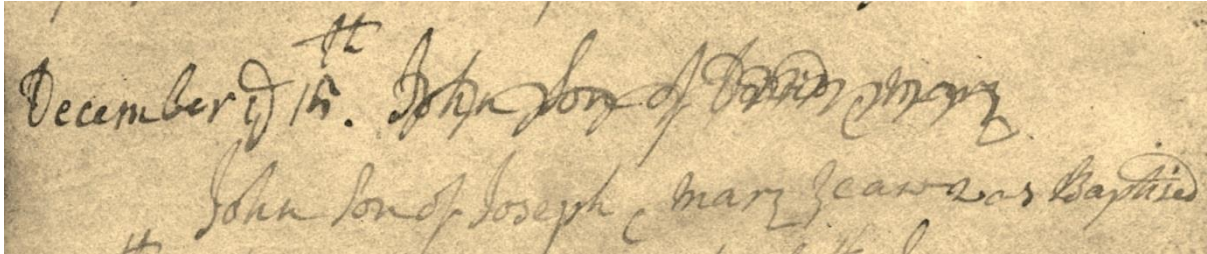 December ye 15th. John Son of David & mary
John Son of Joseph & mary was Baptised